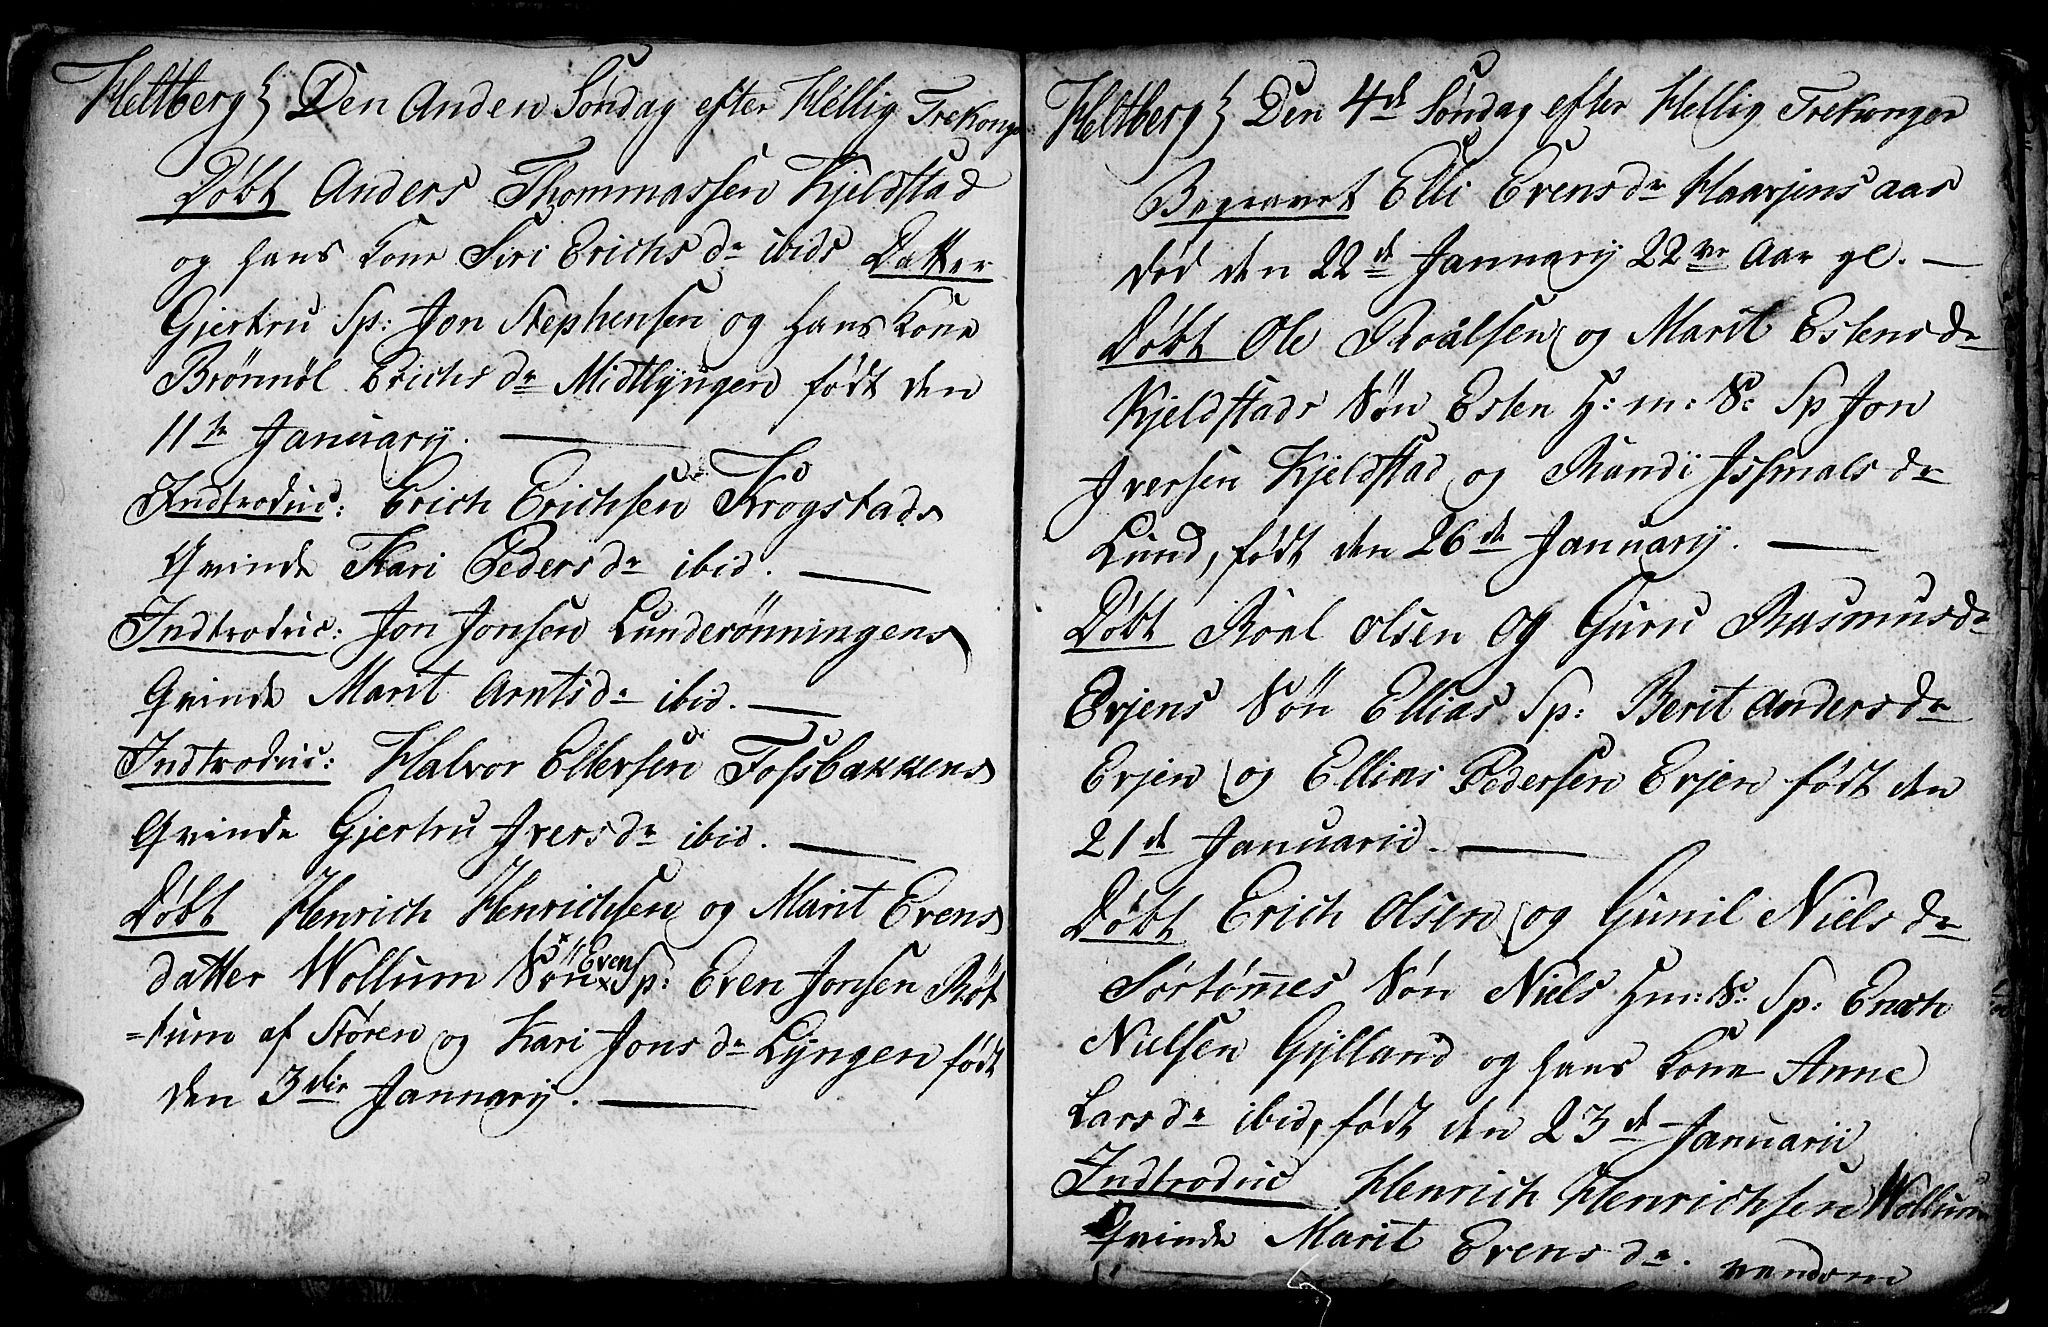 Heltberg } Den Anden Søndag efter Hellig Trekong
Døbt Anders Thommassen Kjeldstad
og hans Kone Siri Erichs dr ibids Datter
Gjertru Sp: Jon Stephensen og hans Kone
Brønnøl Erichs dr Midtlyngen født den
11te January.
Indtroduc: Erich Erichsen Krogstads
Qvinde Kari Peders dr ibid.
Indtroduc: Jon Jonsen Lunderønningens
Qvinde Marit Arntsdr ibid.
Indtroduc: Halvor Ellersen Fossbakkens
Qvinde Gjertru Ivers dr ibid.
Døbt Henrich Henrichsen og Marit Evens
datter Wollum Søn Even Sp: Even Jonsen Røt
=tum af Støren og Kari Jons dr Lyngen født
den 3die January.
Heltberg } Den 4de Søndag efter Hellig Trekonger
Begravet Elli Evens dr Haarjens aas
død den 22de January 22ve Aar gl.
Døbt Ole Roalsen og Marit Estens dr
Kjeldstads Søn Esten H: m: S: Sp Jon
Iversen Kjeldstad og Randi Issmals dr
Lund, født den 26de January.
Døbt Roal Olsen og Guru Rasmusdr
Evjens Søn Ellias Sp: Berit Anders dr
Evjen og Ellias Pedersen Evjen født den
21de Januarii.
Døbt Erich Olsen og Gunil Niels dr
Sørtømmes Søn Niels H m: S: Sp: Enoch
Nielsen Gylland og hans Kone Anne
Lars dr ibid, født den 23de Januarii
Indtroduc Henrich Henrichsen Wollum
Qvinde Marit Evens dr.